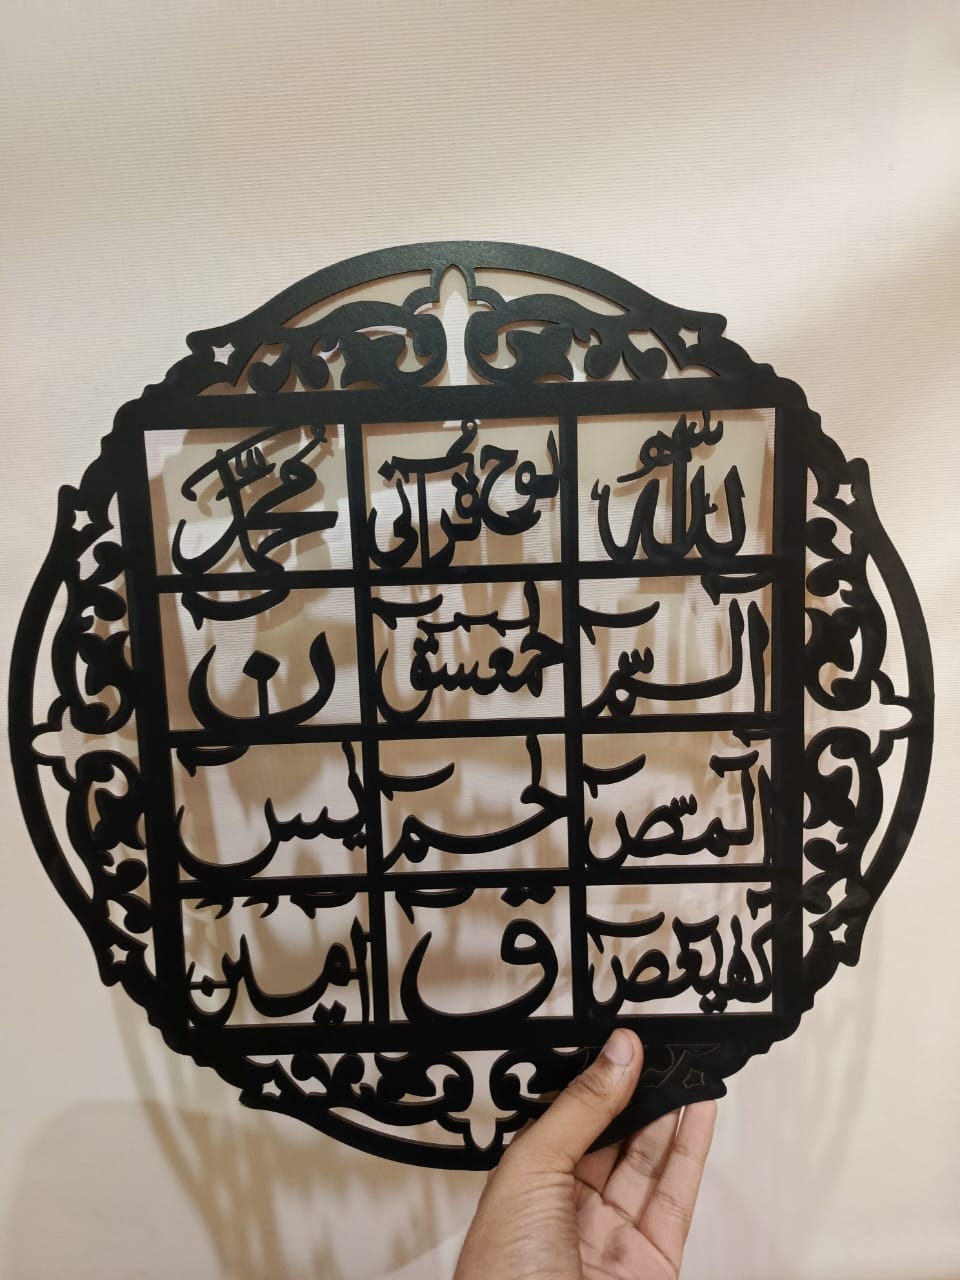 الله لوح قرآنی محمّد
الٓمّٓ حٰمٓعٓسٓقٓ نٓ
الٓمّٓصٓ حٰمٓ یٰسٓ
کٓھٰیٰعٓصٓ قٓ اٰمین